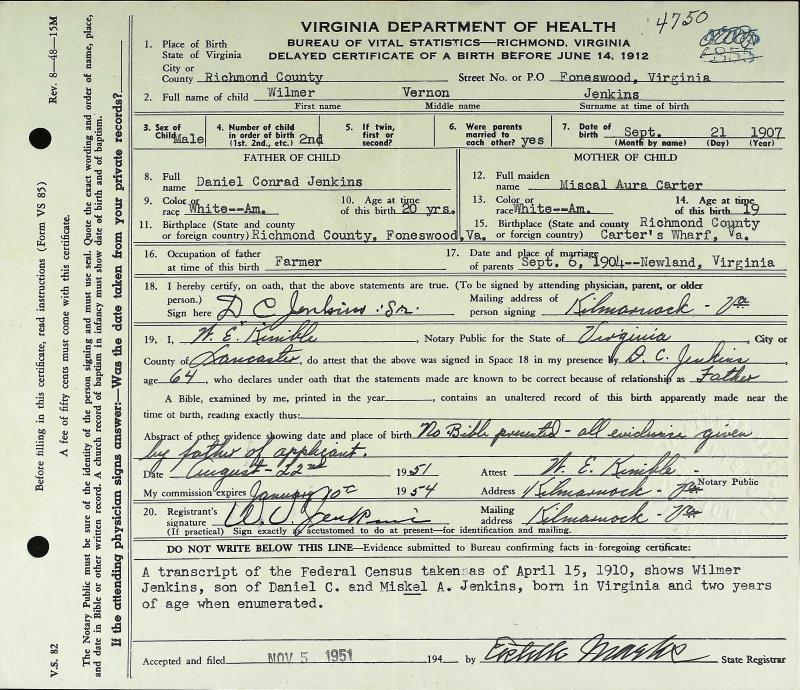 VIRGINIA DEPARTMENT OF HEALTH
4750
BUREAU OF VITAL STATISTICS—RICHMOND, VIRGINIA
DELAYED CERTIFICATE OF A BIRTH BEFORE JUNE 14, 1912
1. Place of Birth
State of Virginia
City or
County Richmond County Street No. or P.O Foneswood, Virginia
2. Full name of child Wilmer Vernon Jenkins
First name Middle name Surname at time of birth
3. Sex of Child Male 4. Number of child in order of birth (1st. 2nd., etc.) 2nd 5. If twin, first or second? 6. Were parents married to each other? yes 7. Date of birth Sept. 21 1907
(Month by name) (Day) (Year)
FATHER OF CHILD MOTHER OF CHILD
8. Full name Daniel Conrad Jenkins 12. Full maiden name Miscal Aura Carter
9. Color or race White--Am. 10. Age at time of this birth 20 yrs. 13. Color or race White--Am. 14. Age at time of this birth 19
11. Birthplace (State and county or foreign country) Richmond County, Foneswood, Va. 15. Birthplace (State and county or foreign country) Richmond County Carter's Wharf, Va.
16. Occupation of father at time of this birth Farmer 17. Date and place of marriage of parents Sept. 6, 1904--Newland, Virginia
18. I hereby certify, on oath, that the above statements are true. (To be signed by attending physician, parent, or older
person.) Mailing address of
Sign here D C Jenkins Sr. person signing Kilmarnock - Va
19. I, W. E. Kimble, Notary Public for the State of Virginia, City or
County of Lancaster, do attest that the above was signed in Space 18 in my presence by D. C. Jenkins
age 64, who declares under oath that the statements made are known to be correct because of relationship as Father
A Bible, examined by me, printed in the year, contains an unaltered record of this birth apparently made near the
time of birth, reading exactly thus:
Abstract of other evidence showing date and place of birth No Bible presented - all evidence given
by father of applicant.
Date August - 22nd 1951 Attest W. E. Kimble -
Notary Public
My commission expires January 1954 Address Kilmarnock - Va
20. Registrant's signature W. V. Jenkins Mailing address Kilmarnock - Va
(If practical) Sign exactly as accustomed to do at present—for identification and mailing.
DO NOT WRITE BELOW THIS LINE—Evidence submitted to Bureau confirming facts in foregoing certificate:
A transcript of the Federal Census taken as of April 15, 1910, shows Wilmer
Jenkins, son of Daniel C. and Miskel A. Jenkins, born in Virginia and two years
of age when enumerated.
Accepted and filed NOV 5 1951 194 by Estelle Marks State Registrar
Rev. 8—48—15M
Before filling in this certificate, read instructions (Form VS 85)
A fee of fifty cents must come with this certificate.
V.S. 82
The Notary Public must be sure of the identity of the person signing and must use seal. Quote the exact wording and order of name, place,
and date in Bible or other written record. A church record of baptism in infancy must show date of birth and of baptism.
If the attending physician signs answer:—Was the date taken from your private records?